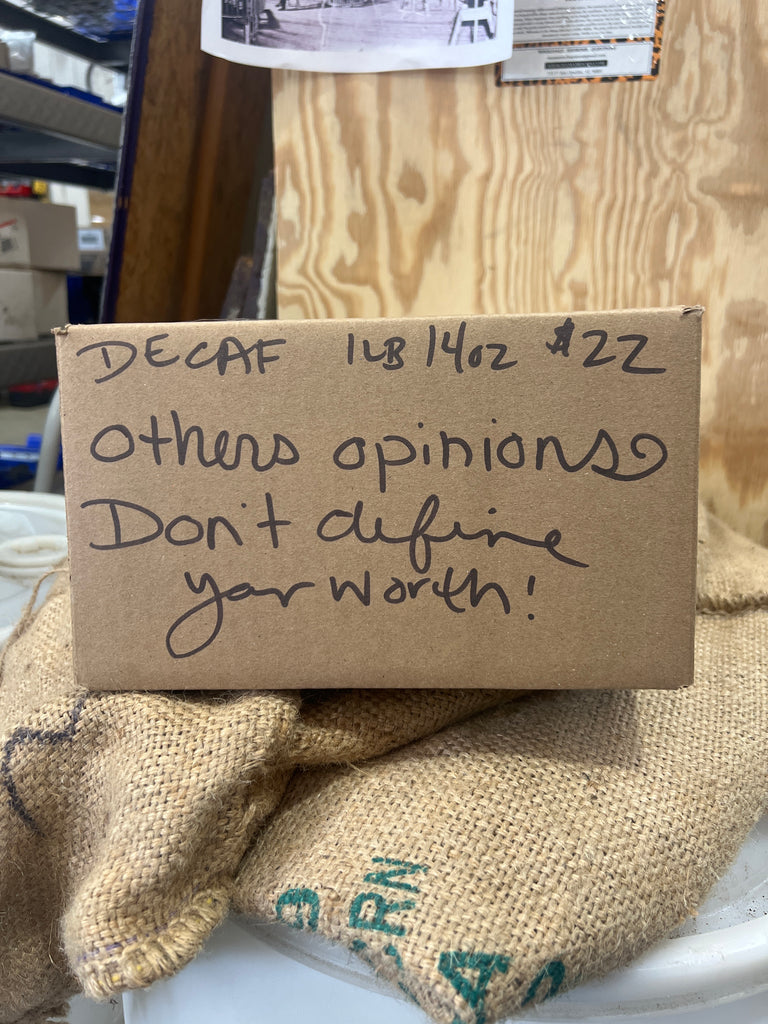 DECAF 1LB 14oz $22
Others opinions
Don't define
your worth!
CRN